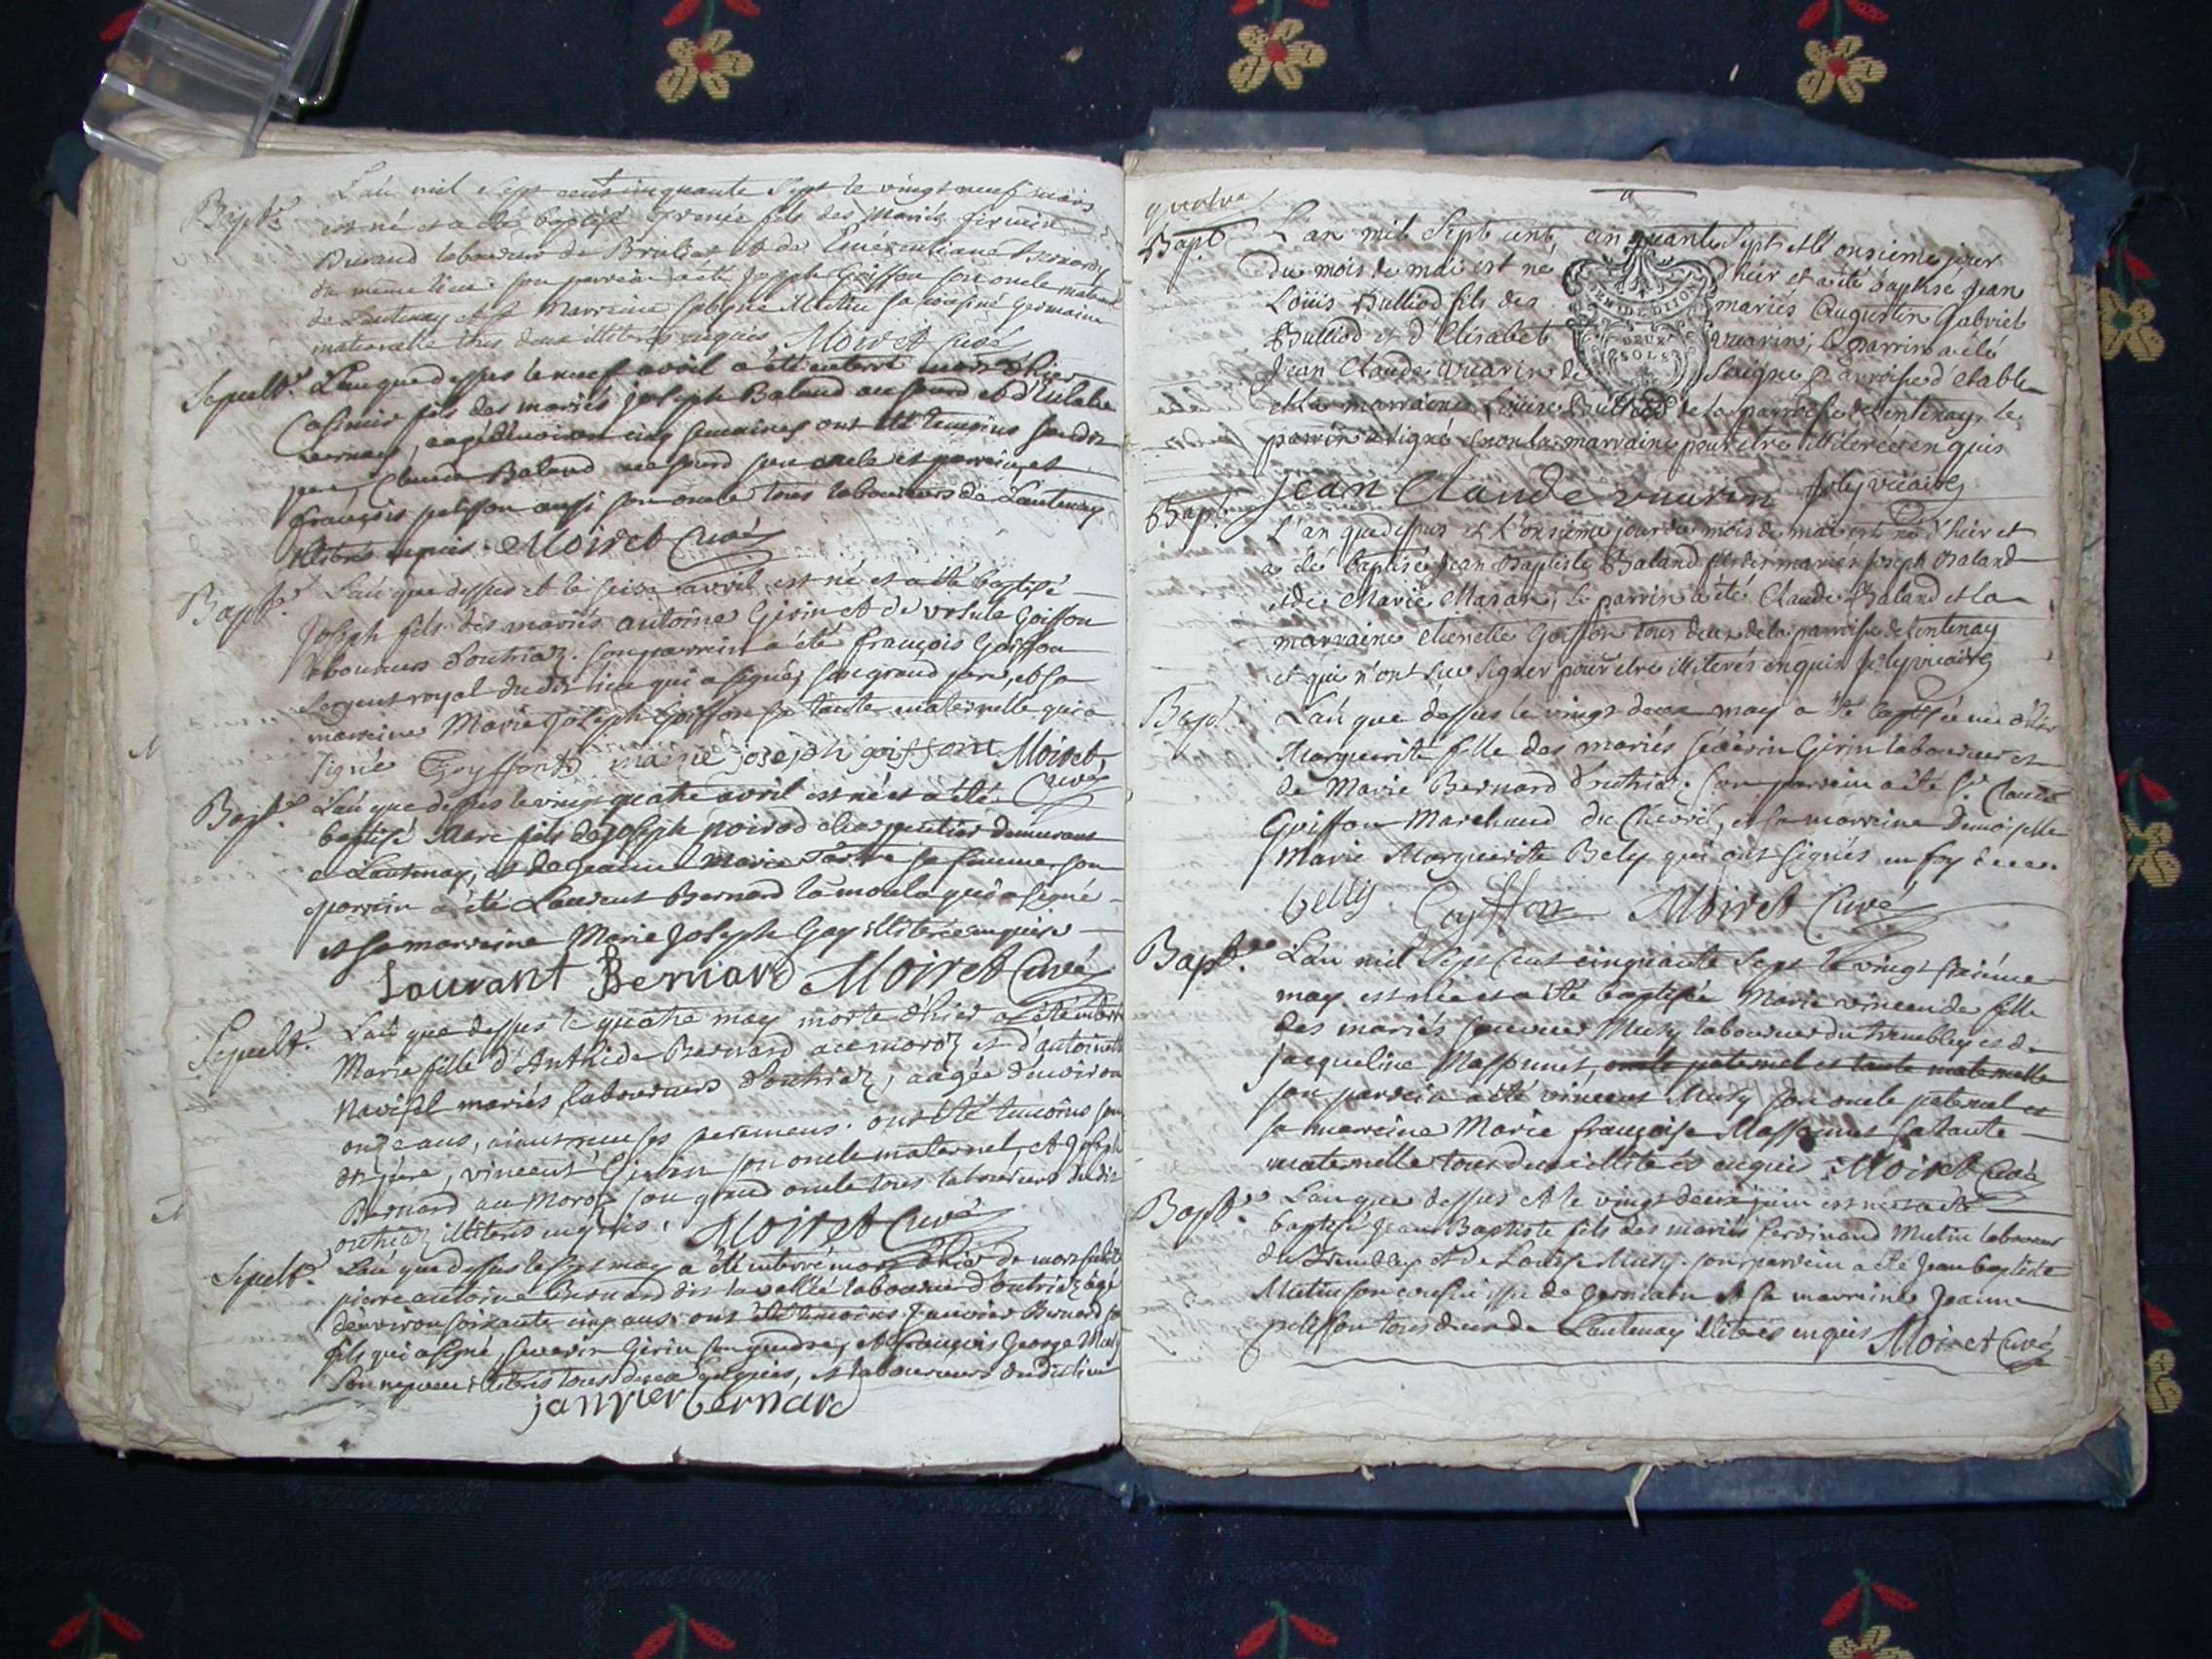 Bapt.e L'an mil sept cent cinquante sept le vingt neuf mars
est né et a été baptisé fils des mariés firmin
Durand laboureur de et de Emérentiane Bernard
du même lieu. son parrain a été Joseph Goiffon son oncle maternel
de Lantenay et sa marreine Mutin sa cousine germaine
maternelle tous deux illiterés enquis, Moiret Curé
Sepult.e L'an que dessus le neuf avril a été enterré mort d'hier
Casimir fils des mariés joseph Baland au sourd et d'Eulalie
Bernard, aagé d'environ cinq semaines ont été temoins son dit
pere, Claude Baland au sourd son oncle et parrein, et
françois pelisson aussi son oncle tous laboureurs de Lantenay
illiterés enquis. Moiret Curé
Bapt.e L'an que dessus et le seize avril, est né et a été baptisé
Joseph fils des mariés antoine Girin et de ursule Goiffon
laboureurs d'outriaz. son parrein a été françois Goiffon
sergent royal dudit lieu qui a signé, son grand pere, et sa
marreine Marie Joseph Goiffon sa tante maternelle qui a
signé Goyffond marie joseph goiffont Moiret
Curé
Bapt.e L'an que dessus le vingt quatre avril est né et a été
baptisé Marc fils de joseph poirod charpentier demeurant
a Lantenay, et de jeanne Marie Tartre sa femme. son
parrein a été Laurent Bernard la moula qui a signé
et sa marreine Marie Joseph Gay illiterée enquise
Lourant Bernard Moiret Curé
Sepult.e L'an que dessus le quatre may morte d'hier a été enterrée
Marie fille d'Anthide Bernard au moroz et d'antoinette
mariés, laboureurs d'outriaz, aagée d'environ
onze ans, aiant reçu ses sacremens. ont été temoins son
dit pere, vincent Girin son oncle maternel, et Joseph
Bernard au Moroz son grand oncle tous laboureurs dudit
outriaz illiterés enquis. Moiret Curé
Sepult.e L'an que dessus le sept may a été enterré mort d'hier de mort subite
pierre antoine Bernard dit laboureur d'outriaz agé
d'environ soixante cinq ans. ont été temoins janvier Bernard son
fils qui a signé, severin Girin son gendre, et françois George
son neveu illiterés tous deux enquis, et laboureurs dudit lieu
janvier bernard
quatre
Bapt.e L'an mil sept cent, cinquante sept et l'onsieme jour
du mois de mai est né d'hier et a été baptisé jean
Loüis Bulliod fils des mariés Augustin Gabriel
Bulliod et d'Elisabet vuarin; le parrin a été
Jean Claude vuarin de Seigne parroisse d'etable
et la marraine Loüise Bulliod de la parroisse de Lentenay le
parrin a signé et non la marraine pour etre illiterée enquis
GEN. DE DIJON
DEUX
SOLS
jean Claude vuarin Joly vicaire
Bapt.e L'an que dessus et l'onsieme jour du mois de mai est né d'hier et
a été baptisé Jean Baptiste Baland fils des mariés joseph Baland
et de Marie Maran; le parrin a été Claude Baland et la
marraine Goiffon tous deux de la parroisse de Lentenay
et qui n'ont sçu signer pour etre illiterés enquis Joly vicaire
Bapt. L'an que dessus le vingt deux may a été baptisée née d'hier
Marguerite fille des mariés séverin Girin laboureur et
de Marie Bernard d'outriaz. son parrein a été S.r Claude
Goiffon Marchand du et sa marreine Demoiselle
Marie Marguerite Bely qui ont signés en foy de ce.
belly Goyffon Moiret Curé
Bapt.e L'an mil sept cent cinquante sept le vingt sixiéme
may est née et a été baptisée Marie vincende fille
des mariés Musy laboureur du tremblay et de
jacqueline Massonnet, oncle paternel et tante maternelle
son parrein a été vincent Musy son oncle paternel et
sa marreine Marie françoise Massonnet sa tante
maternelle tous deux illiterés enquis, Moiret Curé
Bapt.e L'an que dessus et le vingt deux juin est né et a été
baptisé Jean Baptiste fils des mariés ferdinand Mutin laboureur
du Tremblay et de Louise Musy. son parrein a été Jean baptiste
Mutin son cousin issu de germain et sa marreine Jeanne
pelisson tous deux de Lantenay illiterés enquis Moiret Curé